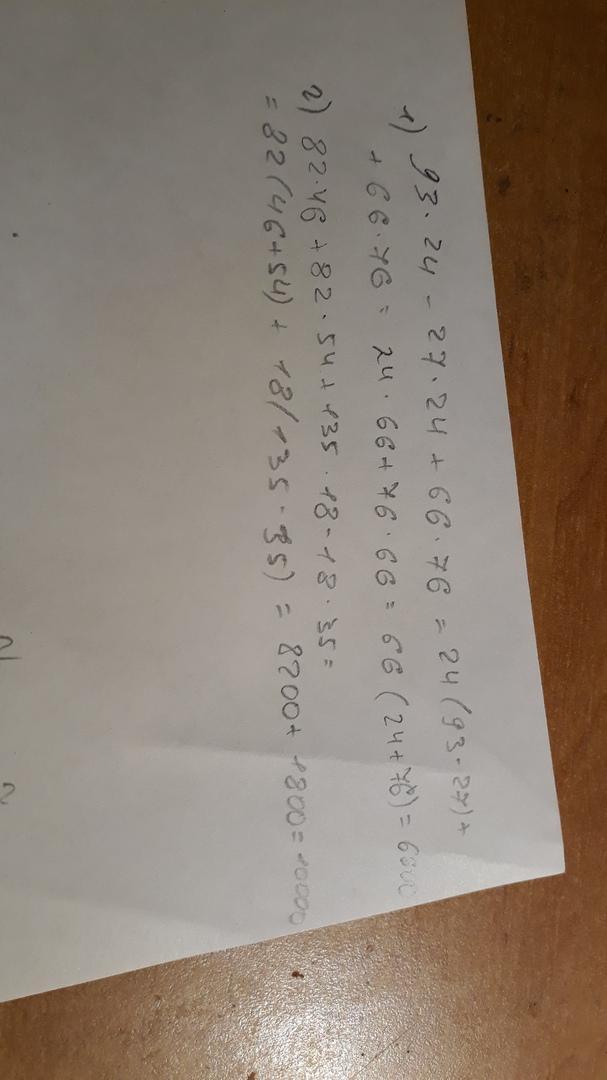 1) 93·24 - 27·24 + 66·76 = 24(93-27)+
+ 66·76 = 24·66+76·66 = 66(24+76) = 6600
2) 82·46 + 82·54 + 135·18-18·35=
= 82(46+54) + 18(135-35) = 8200+ 1800=10000